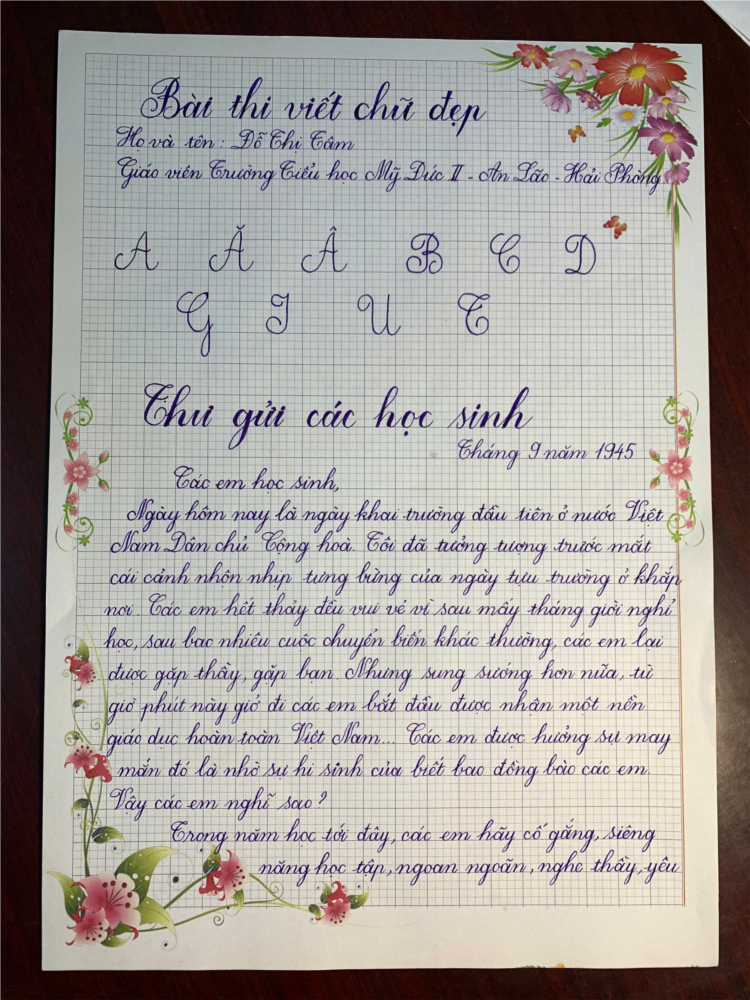 Bài thi viết chữ đẹp
Họ và tên: Đỗ Thi Tâm
Giáo viên Trường Tiểu học Mỹ Đức II - An Lão - Hải Phòng.
A Ă Â B C D
G I U T
Thư gửi các học sinh
Tháng 9 năm 1945
Các em học sinh,
Ngày hôm nay là ngày khai trường đầu tiên ở nước Việt
Nam Dân chủ Cộng hoà. Tôi đã tưởng tượng trước mắt
cái cảnh nhộn nhịp tưng bừng của ngày tựu trường ở khắp
nơi. Các em hết thảy đều vui vẻ vì sau mấy tháng giời nghỉ
học, sau bao nhiêu cuộc chuyển biến khác thường, các em lại
được gặp thầy, gặp bạn. Nhưng sung sướng hơn nữa, từ
giờ phút này giở đi các em bắt đầu được nhận một nền
giáo dục hoàn toàn Việt Nam... Các em được hưởng sự may
mắn đó là nhờ sự hi sinh của biết bao đồng bào các em.
Vậy các em nghĩ sao?
Trong năm học tới đây, các em hãy cố gắng, siêng
năng học tập, ngoan ngoãn, nghe thầy, yêu